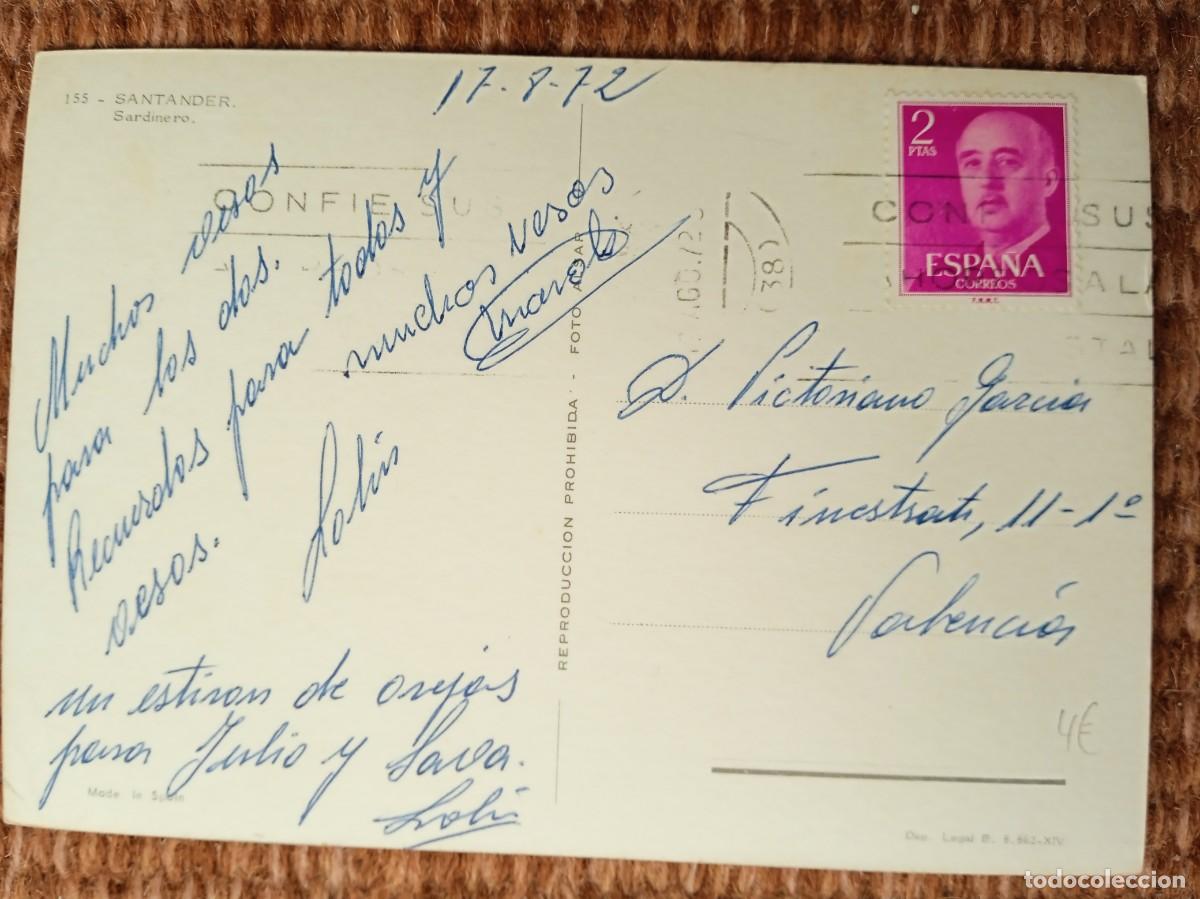 155 - SANTANDER.
Sardinero.
17-8-72
Muchos vesos
para los dos.
Recuerdos para todos y
muchos vesos
vesos.
Lolin
un estiron de orejas
para Julio y
Lolin
Made in Spain
REPRODUCCION PROHIBIDA - FOTO ALSAR
CONFIE SUS
AGO.72
(38)
CONF SUS
2
PTAS
ESPAÑA
CORREOS
F.N.M.T.
D. Victoriano Garcia
Finestrat, 11-1º
Valencia
4€
Dep. Legal B. 6.662-XIV
todocoleccion